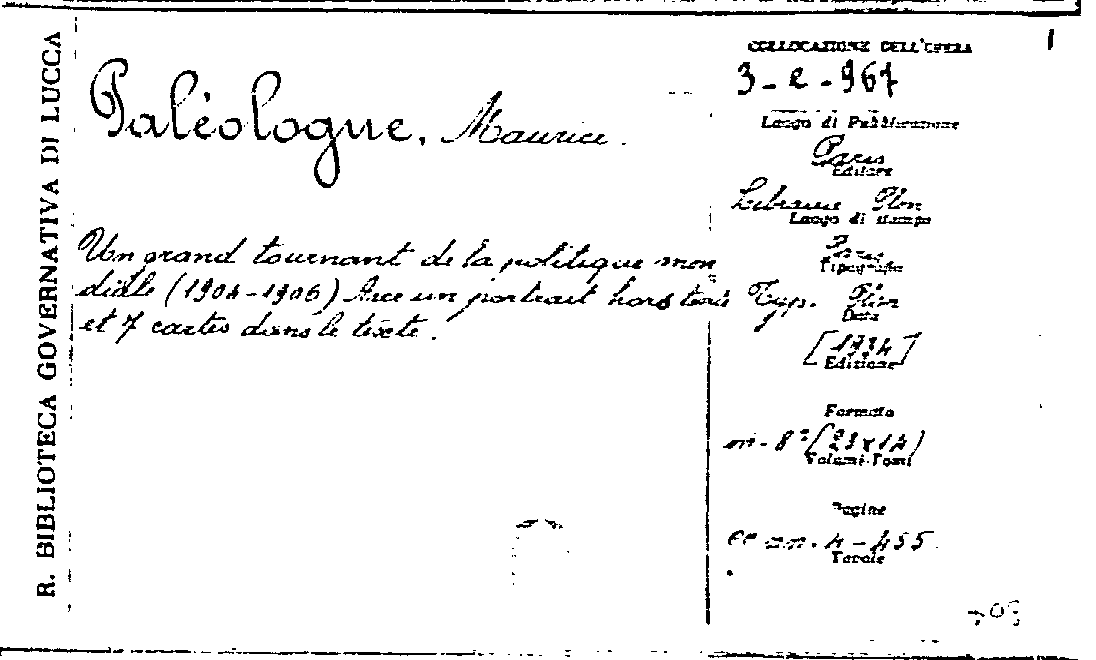 R. BIBLIOTECA GOVERNATIVA DI LUCCA
Paléologue, Maurice.
Un grand tournant de la politique mon
diale (1904-1906) Avec un portrait hors texte
et 7 cartes dans le texte.
1
COLLOCAZIONE DELL'OPERA
3-e-967
Luogo di Pubblicazione
Paris
Editore
Librairie Plon
Luogo di stampa
Paris
Tipografia
Typ. Plon
Data
[1934]
Edizione
Formato
in-8° (23x14)
Volumi-Tomi
Pagine
cc an. 4-455
Tavole